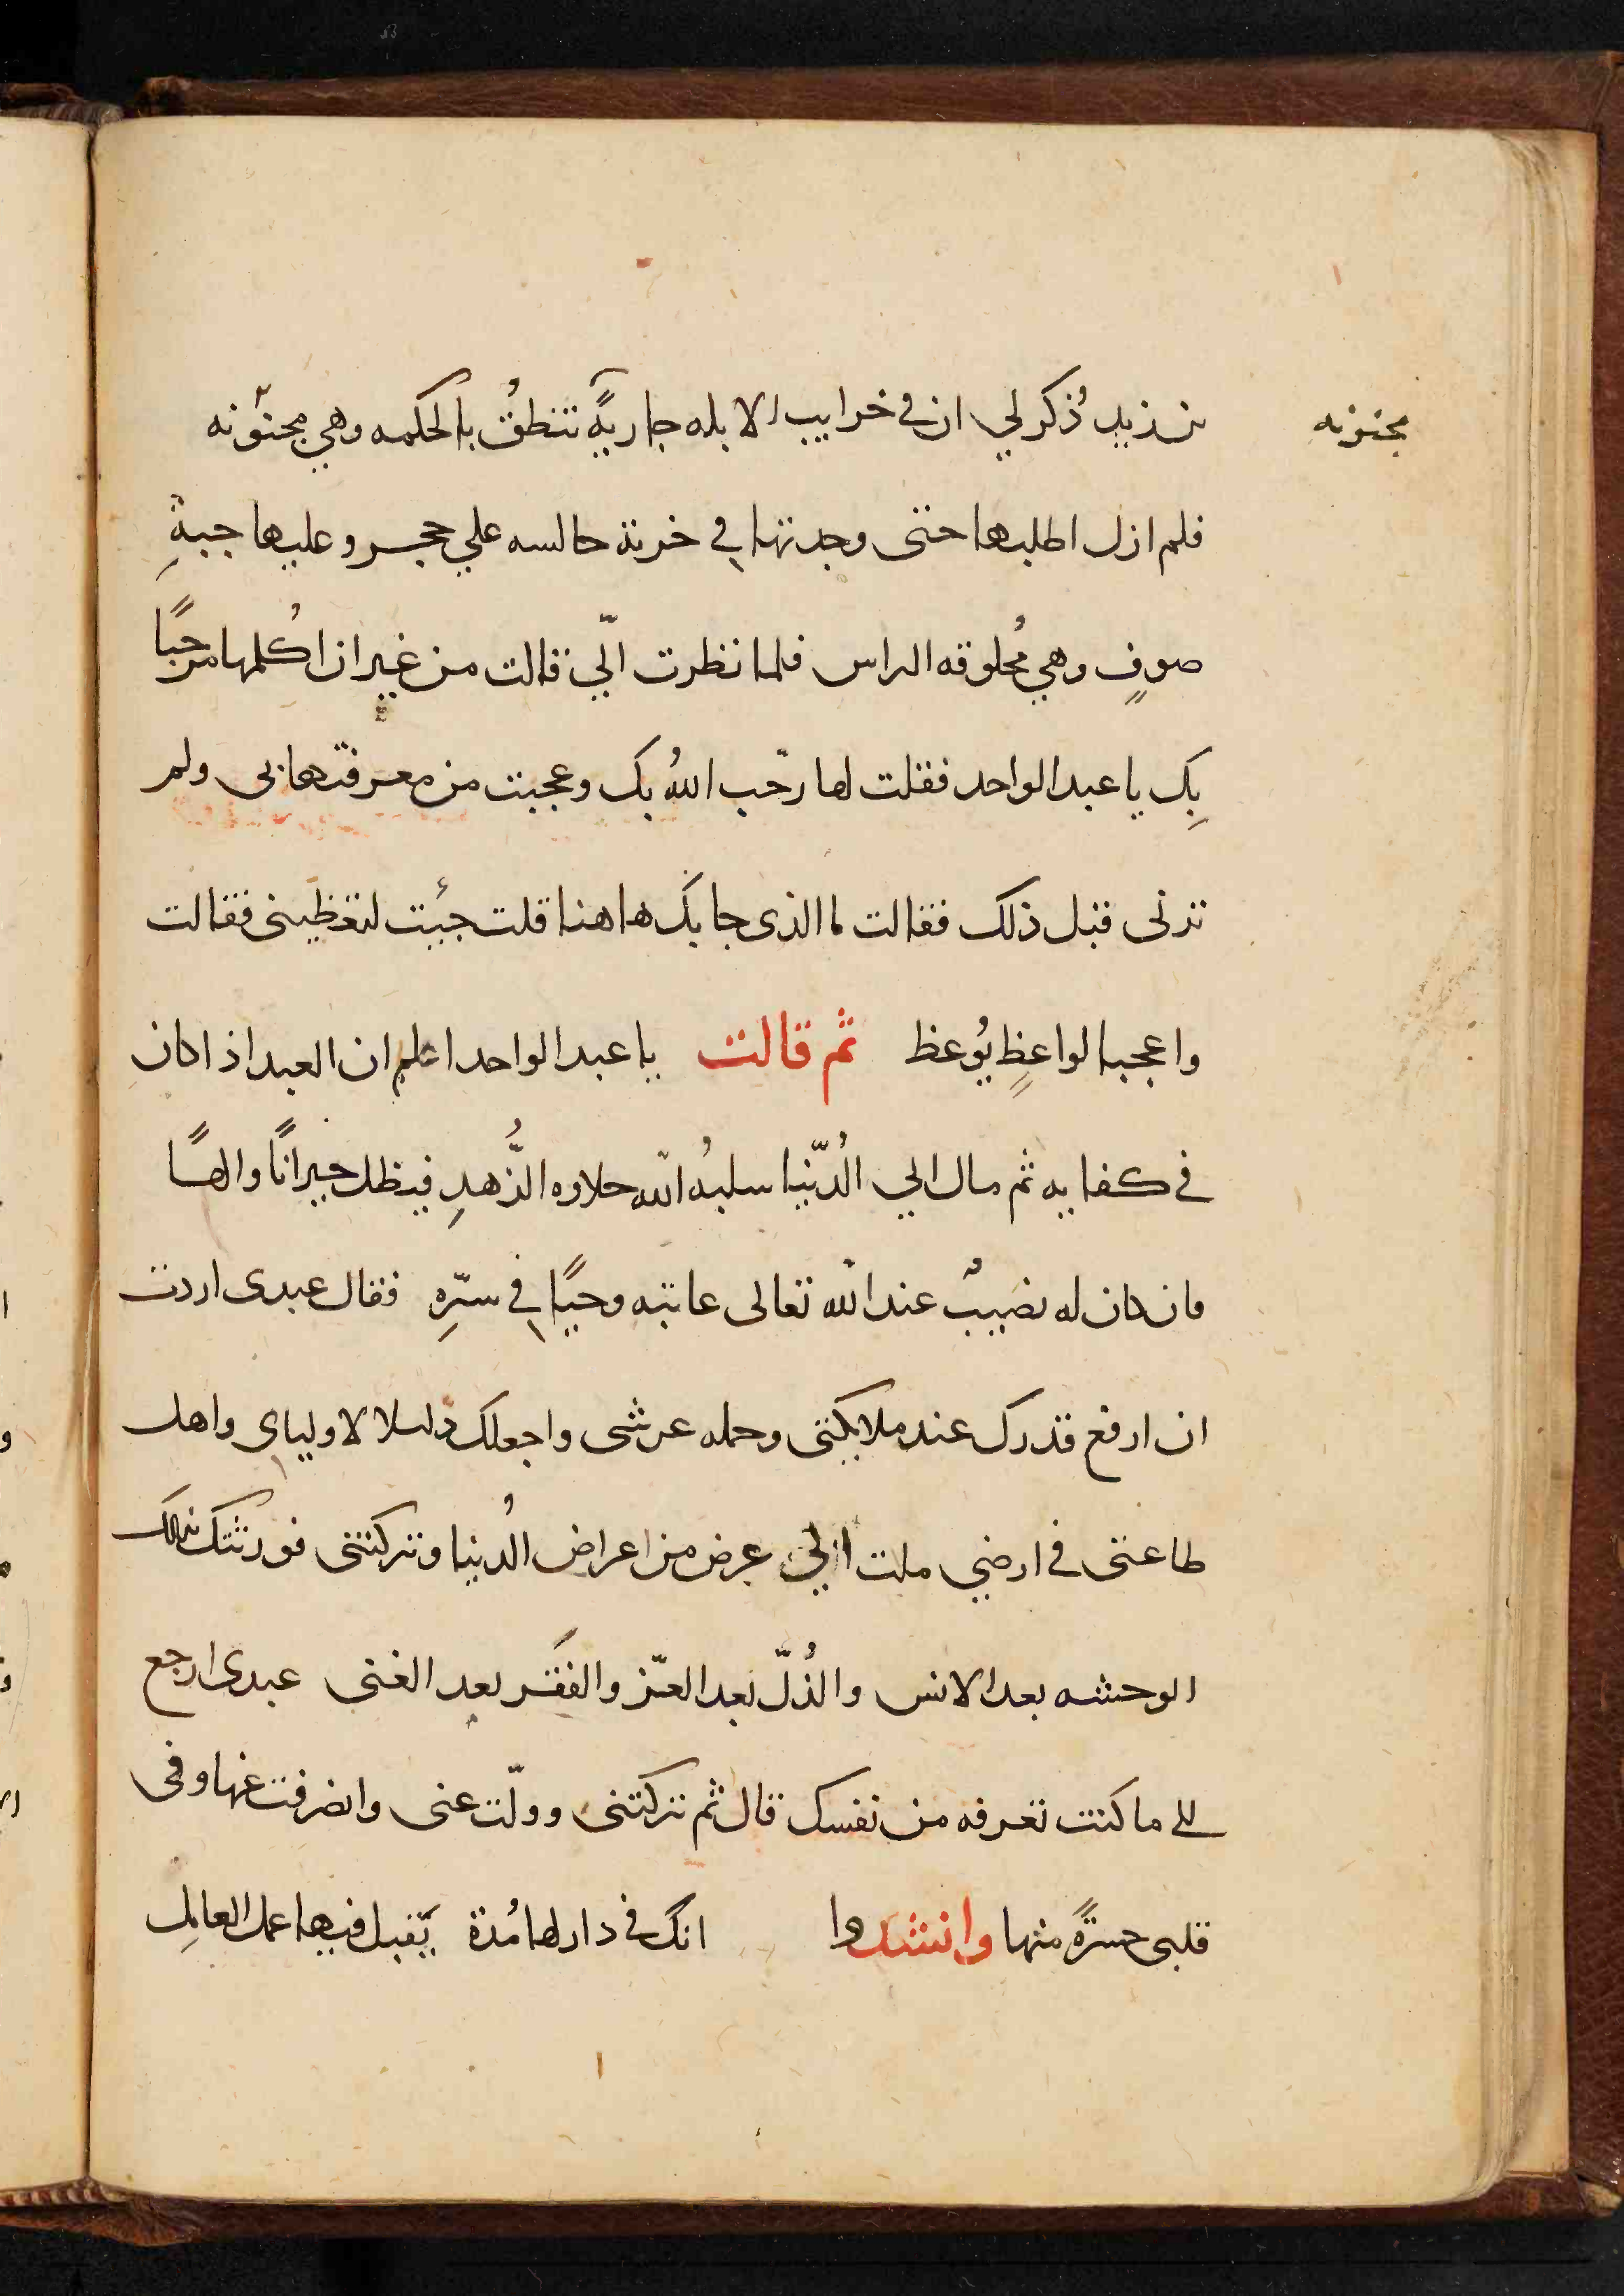 مجنونه
بن زيد ذُكر لي ان في خرايب الابله جاريةً تنطقُ بالحكمه وهي مجنونه
فلم ازل اطلبها حتى وجدتها في خربة جالسه علي حجر وعليها جبةِ
صوفٍ وهي مُحلوقه الراس فلما نظرت اليّ قالت من غير ان اُكلمها مرحبًا
بِك يا عبد الواحد فقلت لها رحّب اللهُ بك وعجبت من معرفتها بى ولم
ترنى قبل ذلك فقالت ما الذى جا بك هاهنا قلت جيئت لتعظينى فقالت
واعجبا لواعظٍ يُوعظ ثم قالت يا عبد الواحد اعلم ان العبد اذا كان
في كفايه ثم مال الي الُدّنيا سلبهُ الله حلاوه الزُّهدِ فيظل حيرانًا والهًا
فان كان له نصيبٌ عند الله تعالى عاتبه وحيًا في سرّهِ فقال عبدى اردت
ان ارفع قدرك عند ملايكتى وحمله عرشى واجعلك دليلا لاولياى واهل
طاعتى في ارضي ملت الي عرض من اعراض الُدنيا وتركتنى فورثتك بذلك
الوحشه بعد الانس والذُلّ بعد العزّ والفقر بعد الغنى عبدى ارجع
الى ما كنت تعرفه من نفسك قال ثم تركتنى وولّت عنى وانصرفت عنها وفى
قلبى حسرةً منها وانشدوا انك في دار لها مُدة يُقبل فيها عمل العامِل